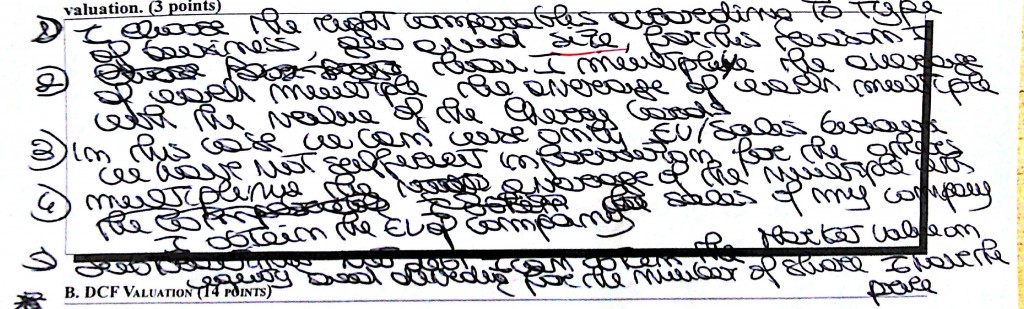 valuation. (3 points)
1) I choose the right comparables according to type
of business, geo and size, for this reason I
2) than I multiply the average
of each multiple the average of each multiple
with the value of the Cherry
3) In this case we can use only EV/Sales because
we have not sufficient information for the others
4) multipling the average of the multiple with
the sales of my company
I obtain the EV of company
5) the Market value on
equity and dividing for the number of share I have the
B. DCF VALUATION (14 POINTS) price